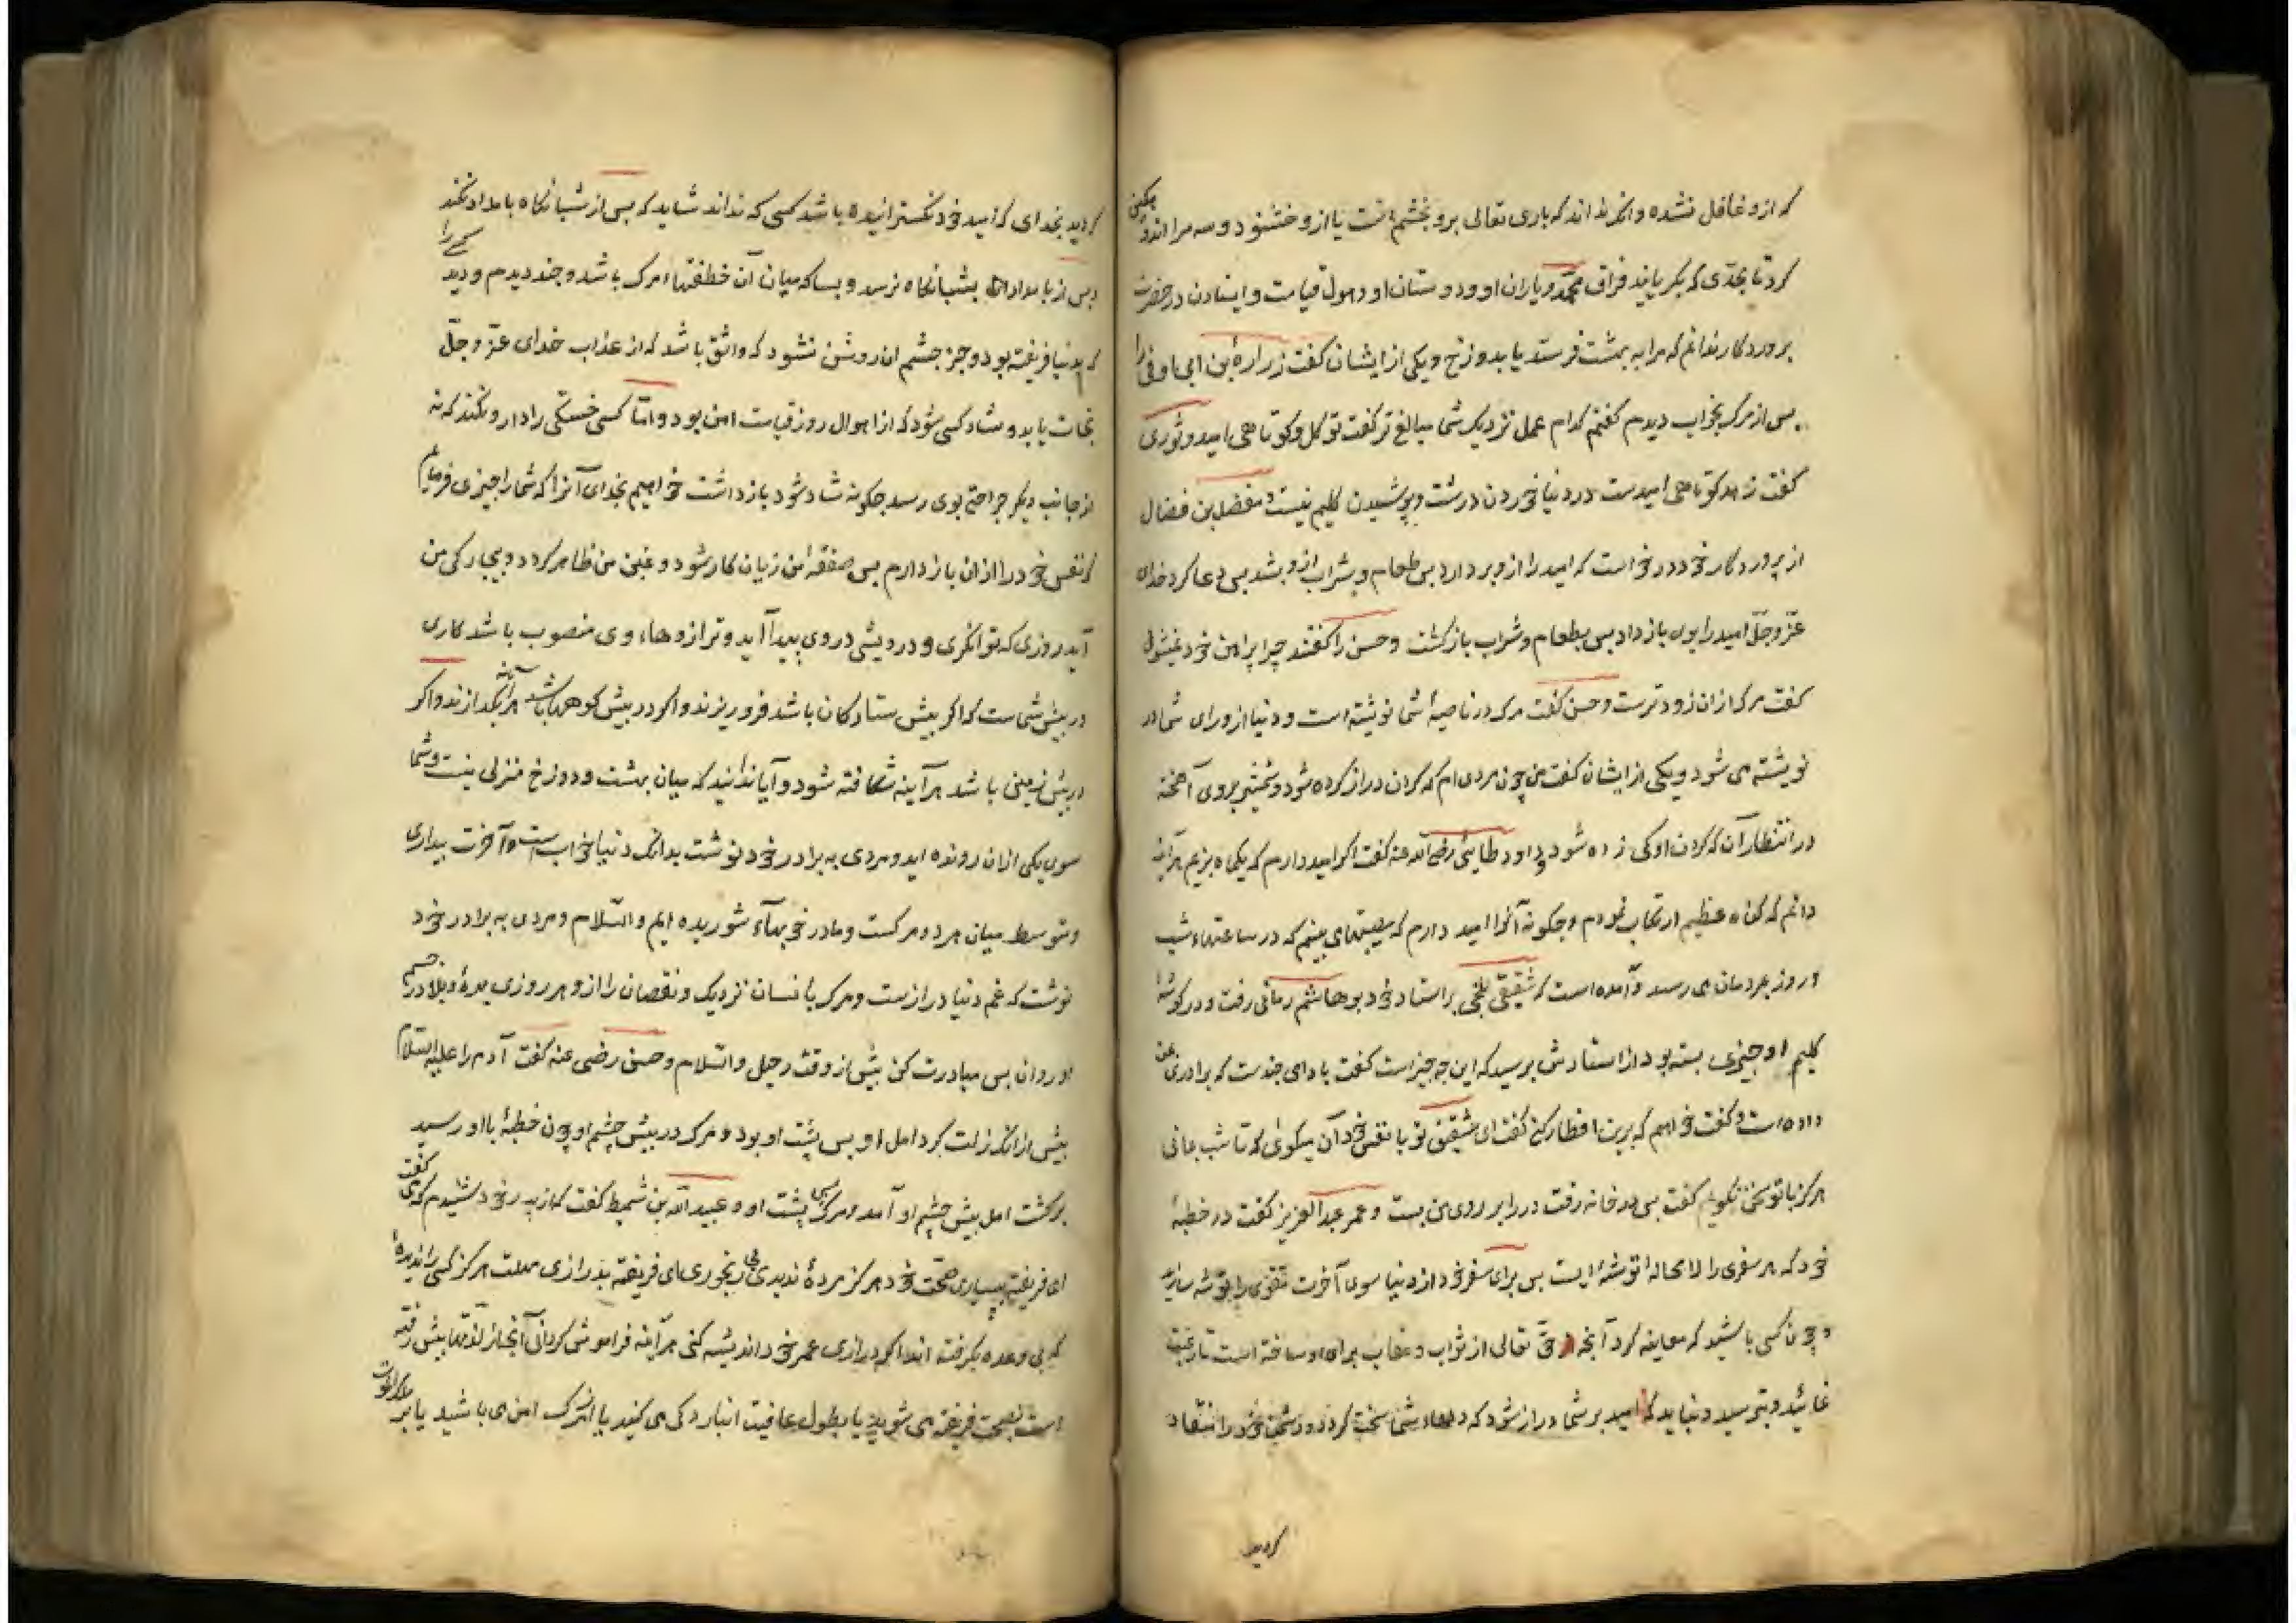 که ازو غافل نشده و آنکه نداند که باری تعالی برو بخشم است یا ازو خشنود و سه مرا اندوهگین
کرد تا بحدی که بگریانید فراق محمد و یاران او و دوستان او و هول قیامت و ایستادن در حضرت
پروردکار ندانم که مرا به بهشت فرستد یا بدوزخ و یکی از ایشان کفت زراره بن ابی اوفی را
پس از مرک بخواب دیدم کفتم کدام عمل نزدیک شما مبالغ تر کفت توکل و کوتاهی امید و ثوری
کفت زهد کوتاهی امیدست در دنیا خوردن درشت و پوشیدن کلیم نیست و مفضل بن فضال
از پروردکار خود درخواست که امید را ازو بردارد پس طعام و شراب ازو بشد پس دعا کرد خدای
عز و جل امید را بوی باز داد پس بطعام و شراب بازکشت و حسن را کفتند چرا پراهن خود نمیشوی
کفت مرک ازان زودترست و حسن کفت مرک در ناصیهٔ شما نوشته است و دنیا از ورای شما در
نوشته می شود و یکی از ایشان کفت من چون مردی ام که کردن دراز کرده شود و شمشیر بروی آهخته
در انتظار آن که کردن او کی زده شود و داود طایئی رضی الله عنه کفت اکر امید دارم که یکماه بزیم هرآینه
دانم که کناه عظیم ارتکاب نمودم و چکونه آنرا امید دارم که مصیبتها می بینم که در ساعتهاء شب
و روز بمردمان می رسد و آمده است که شقیق بلخی بر استاد خود بوهاشم رمانی رفت و در کوشهٔ
کلیم او چیزی بسته بود از استادش پرسید که این چه چیز است کفت بادامی چندست که برادری بمن
داده است و کفت خواهم که برین افطار کنی کفت ای شقیق تو با نفس خود آن میکوئی که تا شب بمانی
هرکز با تو سخن نکویم کفت پس در خانه رفت و در را بر روی من بست و عمر عبدالعزیز کفت در خطبهٔ
خود که هر سفری را لامحاله توشه ایست پس برای سفر خود از دنیا سوی آخرت تقوی را توشه سازید
و چون کسی باشید که معاینه کرد آنچه حق تعالی از ثواب و عقاب برای او ساخته است تا رغبت
نمائید و بترسید و نباید که امید بر شما دراز شود که دلهاء شما سخت کردد و دشمن خود را انتقاد
کردید
کردید بخدای که امید خود نکسترانیده باشد کسی که نداند شاید که پس از شبانکاه بامداد نکند
و پس از بامداد بشبانکاه نرسد و بسا که میان آن خطفتهاء مرک باشد و چند دیدم و دید کسی را
که بدنیا فریفته بود و جز چشم آن روشن نشود که واثق باشد که از عذاب خدای عز و جل
نجات یابد و شاد کسی شود که از اهوال روز قیامت امن بود و اما کسی خستکی را دارو نکند که نه
از جانب دیکر جراحتی بوی رسد چکونه شاد شود باز داشت خواهیم بخدای آنرا که شما را چیزی فرمایم
که نفس خود را از آن باز دارم پس صفقه من زیان کار شود و غبن من ظاهر کردد و بیچارکی من
آید روزی که توانکری و درویشی دروی پیدا آید و ترازوهاء وی منصوب باشد کاری
در پیش شماست که اکر پیش ستارکان باشد فرو ریزند و اکر در پیش کوهها باشد هرآینه بکدازند و اکر
در پیش زمین باشد هرآینه شکافته شود و آیا ندانید که میان بهشت و دوزخ منزلی نیست و شما
سوی یکی ازان رونده اید و مردی به برادر خود نوشت بدانک دنیا خواب است و آخرت بیداری
و متوسط میان هر دو مرکست و ما در خوابهاء شوریده ایم والسلام و مردی به برادر خود
نوشت که غم دنیا درازست و مرک بانسان نزدیک و نقصان را ازو هر روزی بهرهٔ و بلا در جسم
او روان پس مبادرت کن پیش از وقت رحیل والسلام و حسن رضی عنه کفت آدم را علیه السلام
پیش از آنک زلت کرد امل او پس پشت او بود و مرک در پیش چشم او چون خطیهٔ با او رسید
برکشت امل پیش چشم او آمد و مرک پس پشت او و عبید الله بن شمیط کفت که از پدر خود شنیدم که می کفت
ای فریفته ببسیاری صحت خود هرکز مردهٔ ندیدی بی رنجوری ای فریفته بدرازی مهلت هرکز کسی را ندیدهٔ
که بی وعده بکرفته اند اکر درازی عمر خود اندیشه کنی هرآینه فراموش کردانی آنچه از لذتها پیش رفته
است بصحت فریفته می شوید یا بطول عافیت انباردکی می کنید یا از مرک امن می باشید یا بر ملک الموت